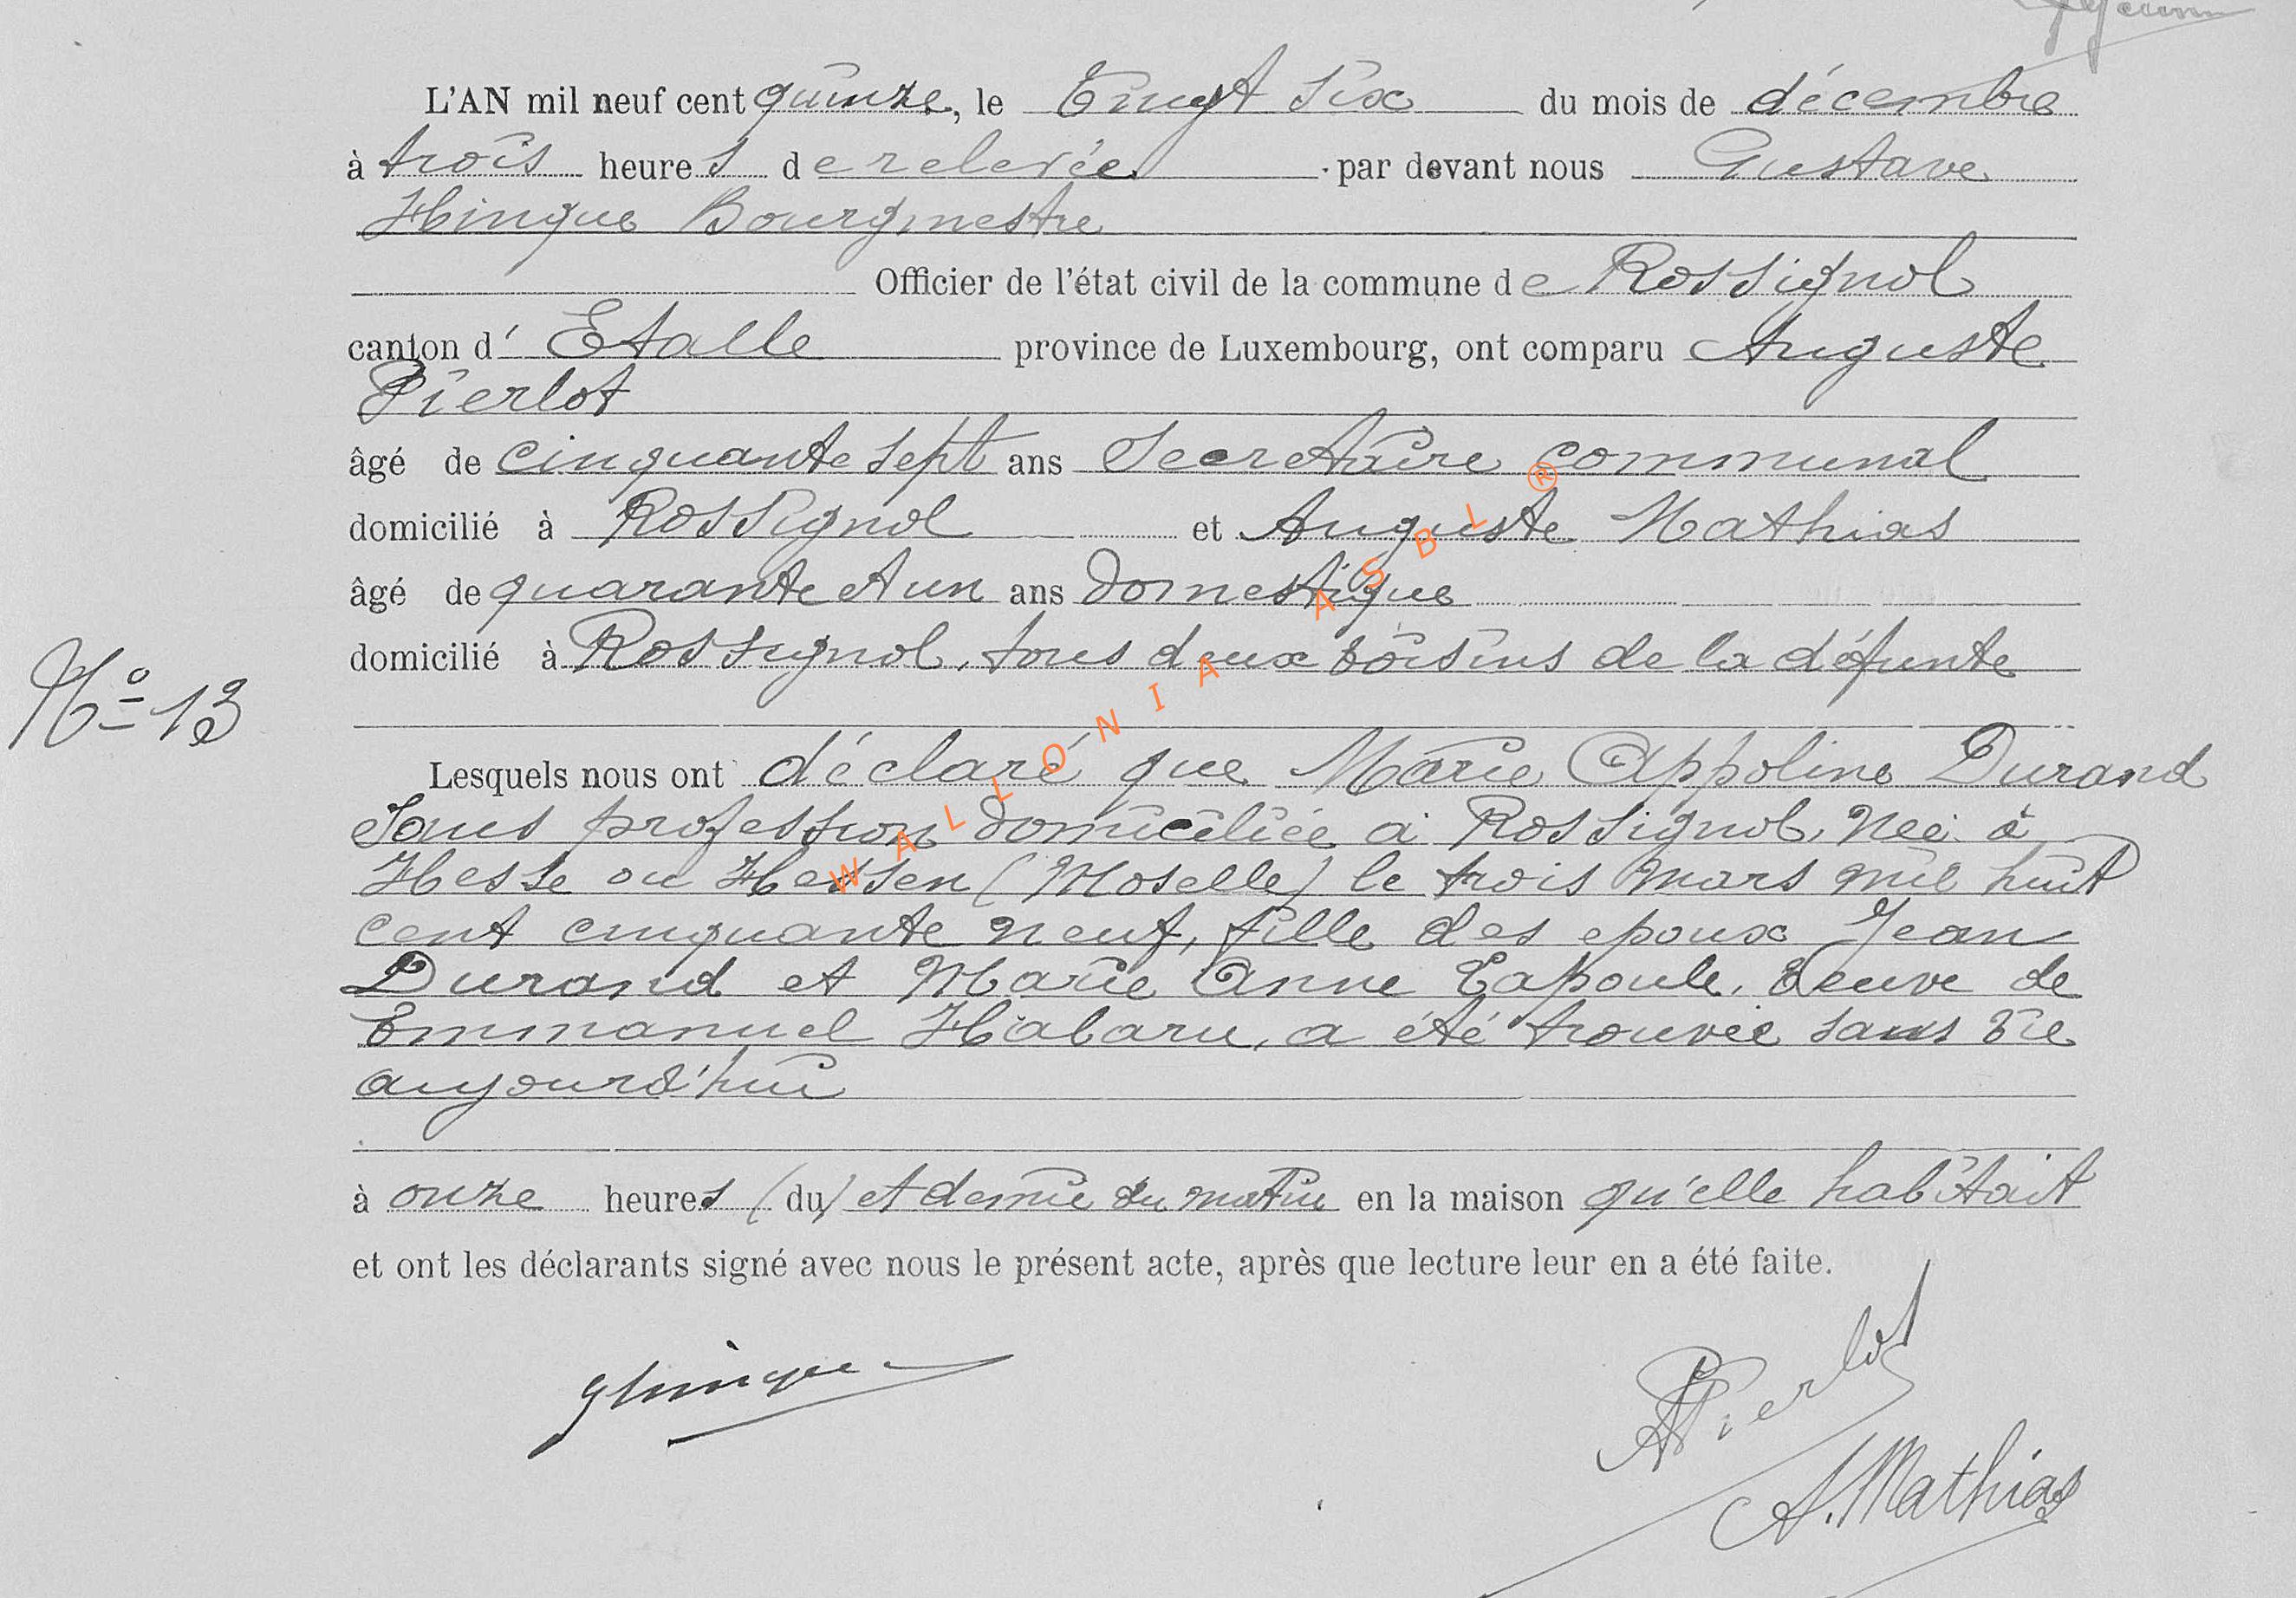 L'AN mil neuf cent quinze, le vingt six du mois de décembre
à trois heures de relevée par devant nous Gustave
Hinque Bourgmestre
Officier de l'état civil de la commune de Rossignol
canton d'Etalle province de Luxembourg, ont comparu Auguste
Pierlot
âgé de cinquante sept ans Secretaire communal
domicilié à Rossignol et Auguste Mathias
âgé de quarante et un ans Domestique
domicilié à Rossignol, tous deux voisins de la défunte
N° 13
Lesquels nous ont déclaré que Marie Appoline Durand
Sans profession domiciliée à Rossignol, Née à
Hesse ou Hessen (Moselle) le trois mars mil huit
cent cinquante neuf, fille des epoux Jean
Durand et Marie Anne Lapoule, Veuve de
Emmanuel Habaru, a été trouvée sans vie
aujourd'hui
à onze heures (du) et demie du matin en la maison qu'elle habitait
et ont les déclarants signé avec nous le présent acte, après que lecture leur en a été faite.
GHinque
APierlot
A. Mathias
WALLONIA ASBL ®